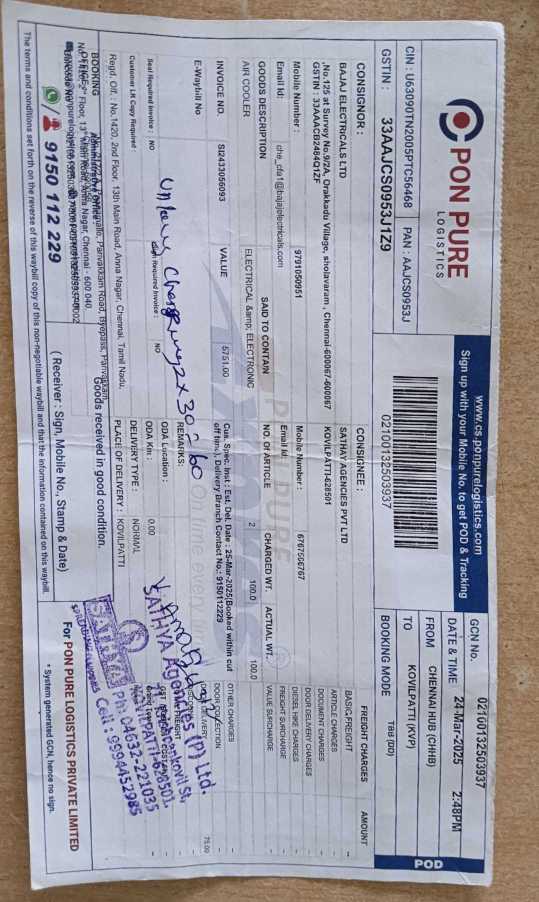 PON PURE
LOGISTICS
www.cs.ponpurelogistics.com
Sign up with your Mobile No. to get POD & Tracking
CIN : U63090TN2005PTC56468 PAN : AAJCS0953J
GSTIN : 33AAJCS0953J1Z9
02100132503937
GCN No. 02100132503937
DATE & TIME 24-Mar-2025 2:48PM
FROM CHENNAI HUB (CHHB)
TO KOVILPATTI (KVP)
BOOKING MODE TBB (DD)
POD
CONSIGNOR :
BAJAJ ELECTRICALS LTD
,No.125 at Survey No.9/2A, Orakkadu Village, sholavaram , Chennai-600067-600067
GSTIN : 33AAACB2484Q1ZF
Mobile Number : 9791050951
Email Id: che_cfa1@bajajelectricals.com
CONSIGNEE :
SATHAY AGENCIES PVT LTD
KOVILPATTI-628501
Mobile Number : 6767666767
Email Id:
GOODS DESCRIPTION SAID TO CONTAIN NO. OF ARTICLE CHARGED WT. ACTUAL WT.
AIR COOLER ELECTRICAL &amp; ELECTRONIC 2 100.0 100.0
INVOICE NO. SI2433056093 VALUE 5751.00
E-Waybill No
Cus. Spec. Inst : Est. Del. Date : 25-Mar-2025(Booked within cut
off time), Delivery Branch Contact No.: 9150112229
REMARKS:
Seal Required Invoice : NO Sign Required Invoice : NO
Customer LR Copy Required :
ODA Location :
ODA Km : 0.00
DELIVERY TYPE : NORMAL
PLACE OF DELIVERY : KOVILPATTI
FREIGHT CHARGES AMOUNT
BASIC FREIGHT -
ARTICLE CHARGES
DOCUMENT CHARGES
DOOR DELIVERY CHARGES
DIESEL HIKE CHARGES
FREIGHT SURCHARGE
VALUE SURCHARGE
OTHER CHARGES
DOOR COLLECTION
DOOR DELIVERY 75.00
2x30=60
Regd. Off. : No.1420, 2nd Floor, 13th Main Road, Anna Nagar, Chennai, Tamil Nadu,
BOOKING
Administrative Office :
9150 112 229
Goods received in good condition.
( Receiver : Sign, Mobile No., Stamp & Date)
SATHYA Agencies (P) Ltd.
Ph: 04632-221035
Cell : 9994452985
For PON PURE LOGISTICS PRIVATE LIMITED
* System generated GCN, hence no sign.
The terms and conditions set forth on the reverse of this waybill copy of this non-negotiable waybill and that the information contained on this waybill.